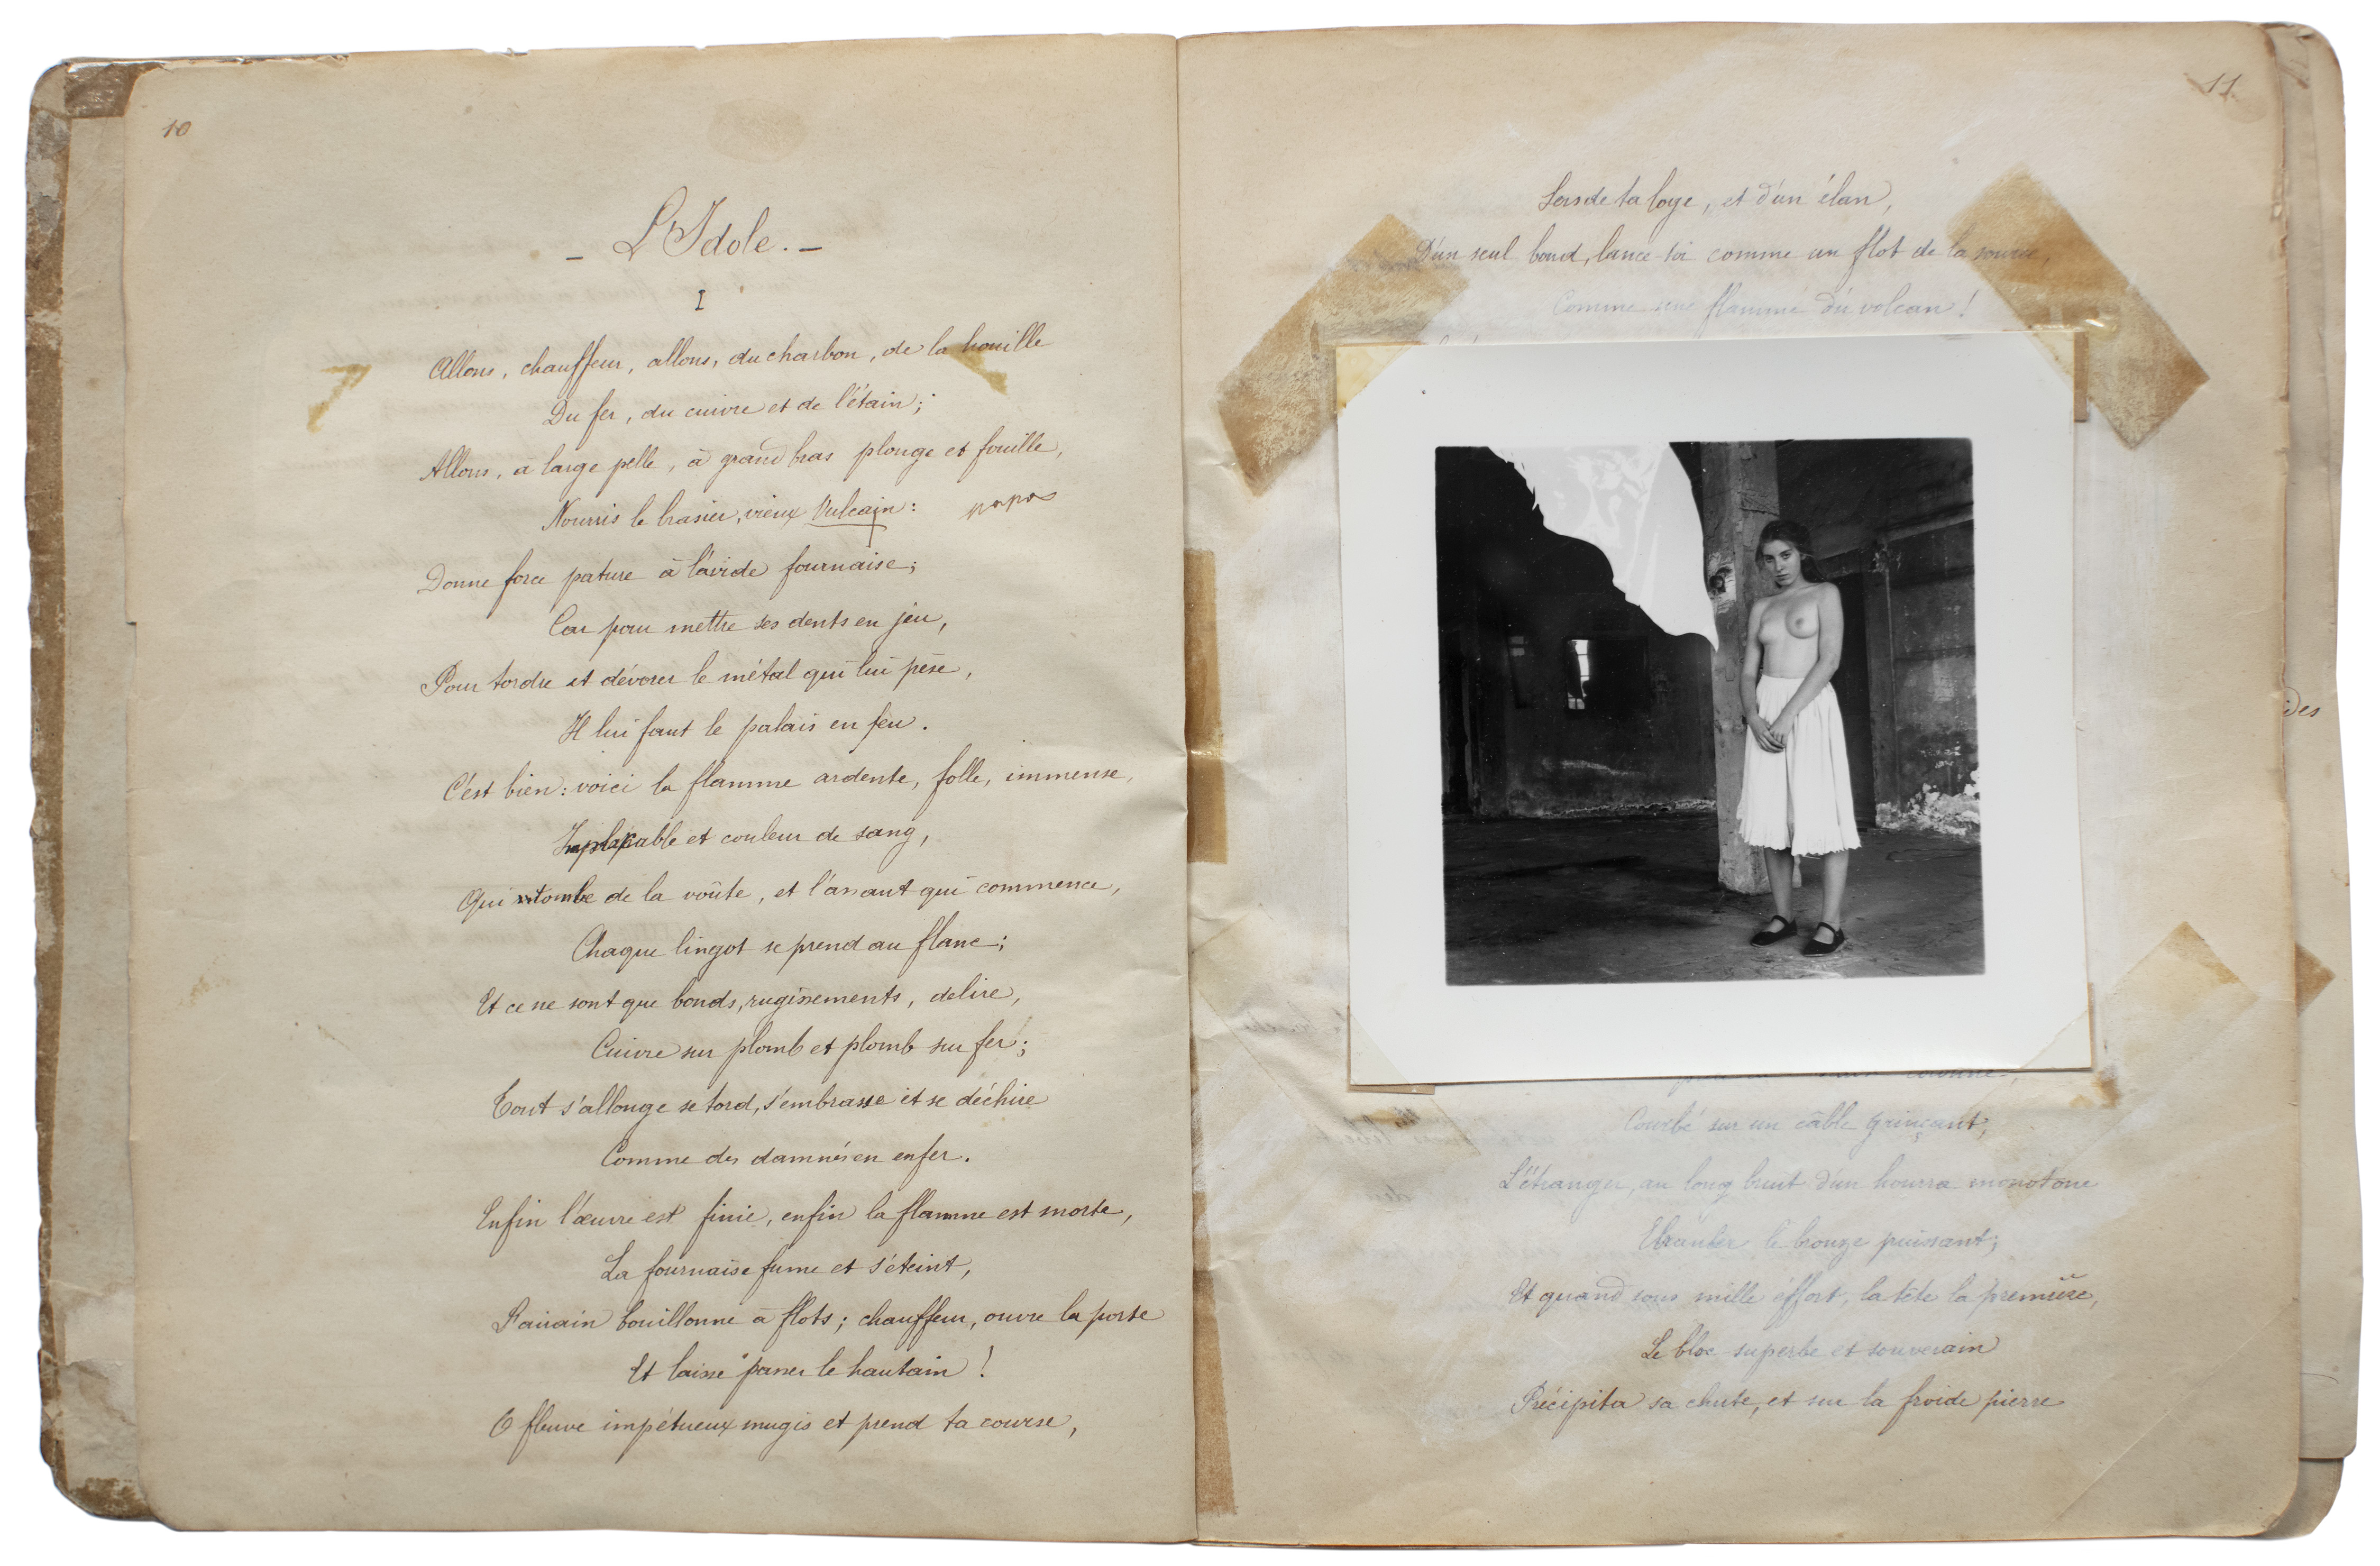 10
- L'Idole. -
I
Allons, chauffeur, allons, du charbon, de la houille
Du fer, du cuivre et de l'étain;
Allons, à large pelle, à grand bras plonge et fouille,
Nourris le brasier, vieux Vulcain:
Donne force pature à l'avide fournaise;
Car pour mettre ses dents en jeu,
Pour tordre et dévorer le métal qui lui pèse,
Il lui faut le palais en feu.
C'est bien: voici la flamme ardente, folle, immense,
Implacable et couleur de sang,
Qui tombe de la voûte, et l'assaut qui commence,
Chaque lingot se prend au flanc;
Et ce ne sont que bonds, rugissements, delire,
Cuivre sur plomb et plomb sur fer;
Tout s'allonge se tord, s'embrasse et se déchire
Comme des damnés en enfer.
Enfin l'œuvre est finie, enfin la flamme est morte,
La fournaise fume et s'éteint,
L'airain bouillonne à flots; chauffeur, ouvre la porte
Et laisse passer le hautain!
O fleuve impétueux mugis et prend ta course,
11
Sors de ta loge, et d'un élan,
D'un seul bond, lance-toi comme un flot de la source,
Comme une flamme du volcan!
Courbé sur un câble grinçant,
L'étranger, au long bruit d'un hourra monotone
Ebranler le bronze puissant;
Et quand sous mille effort, la tête la première,
Le bloc superbe et souverain
Précipita sa chute, et sur la froide pierre
des